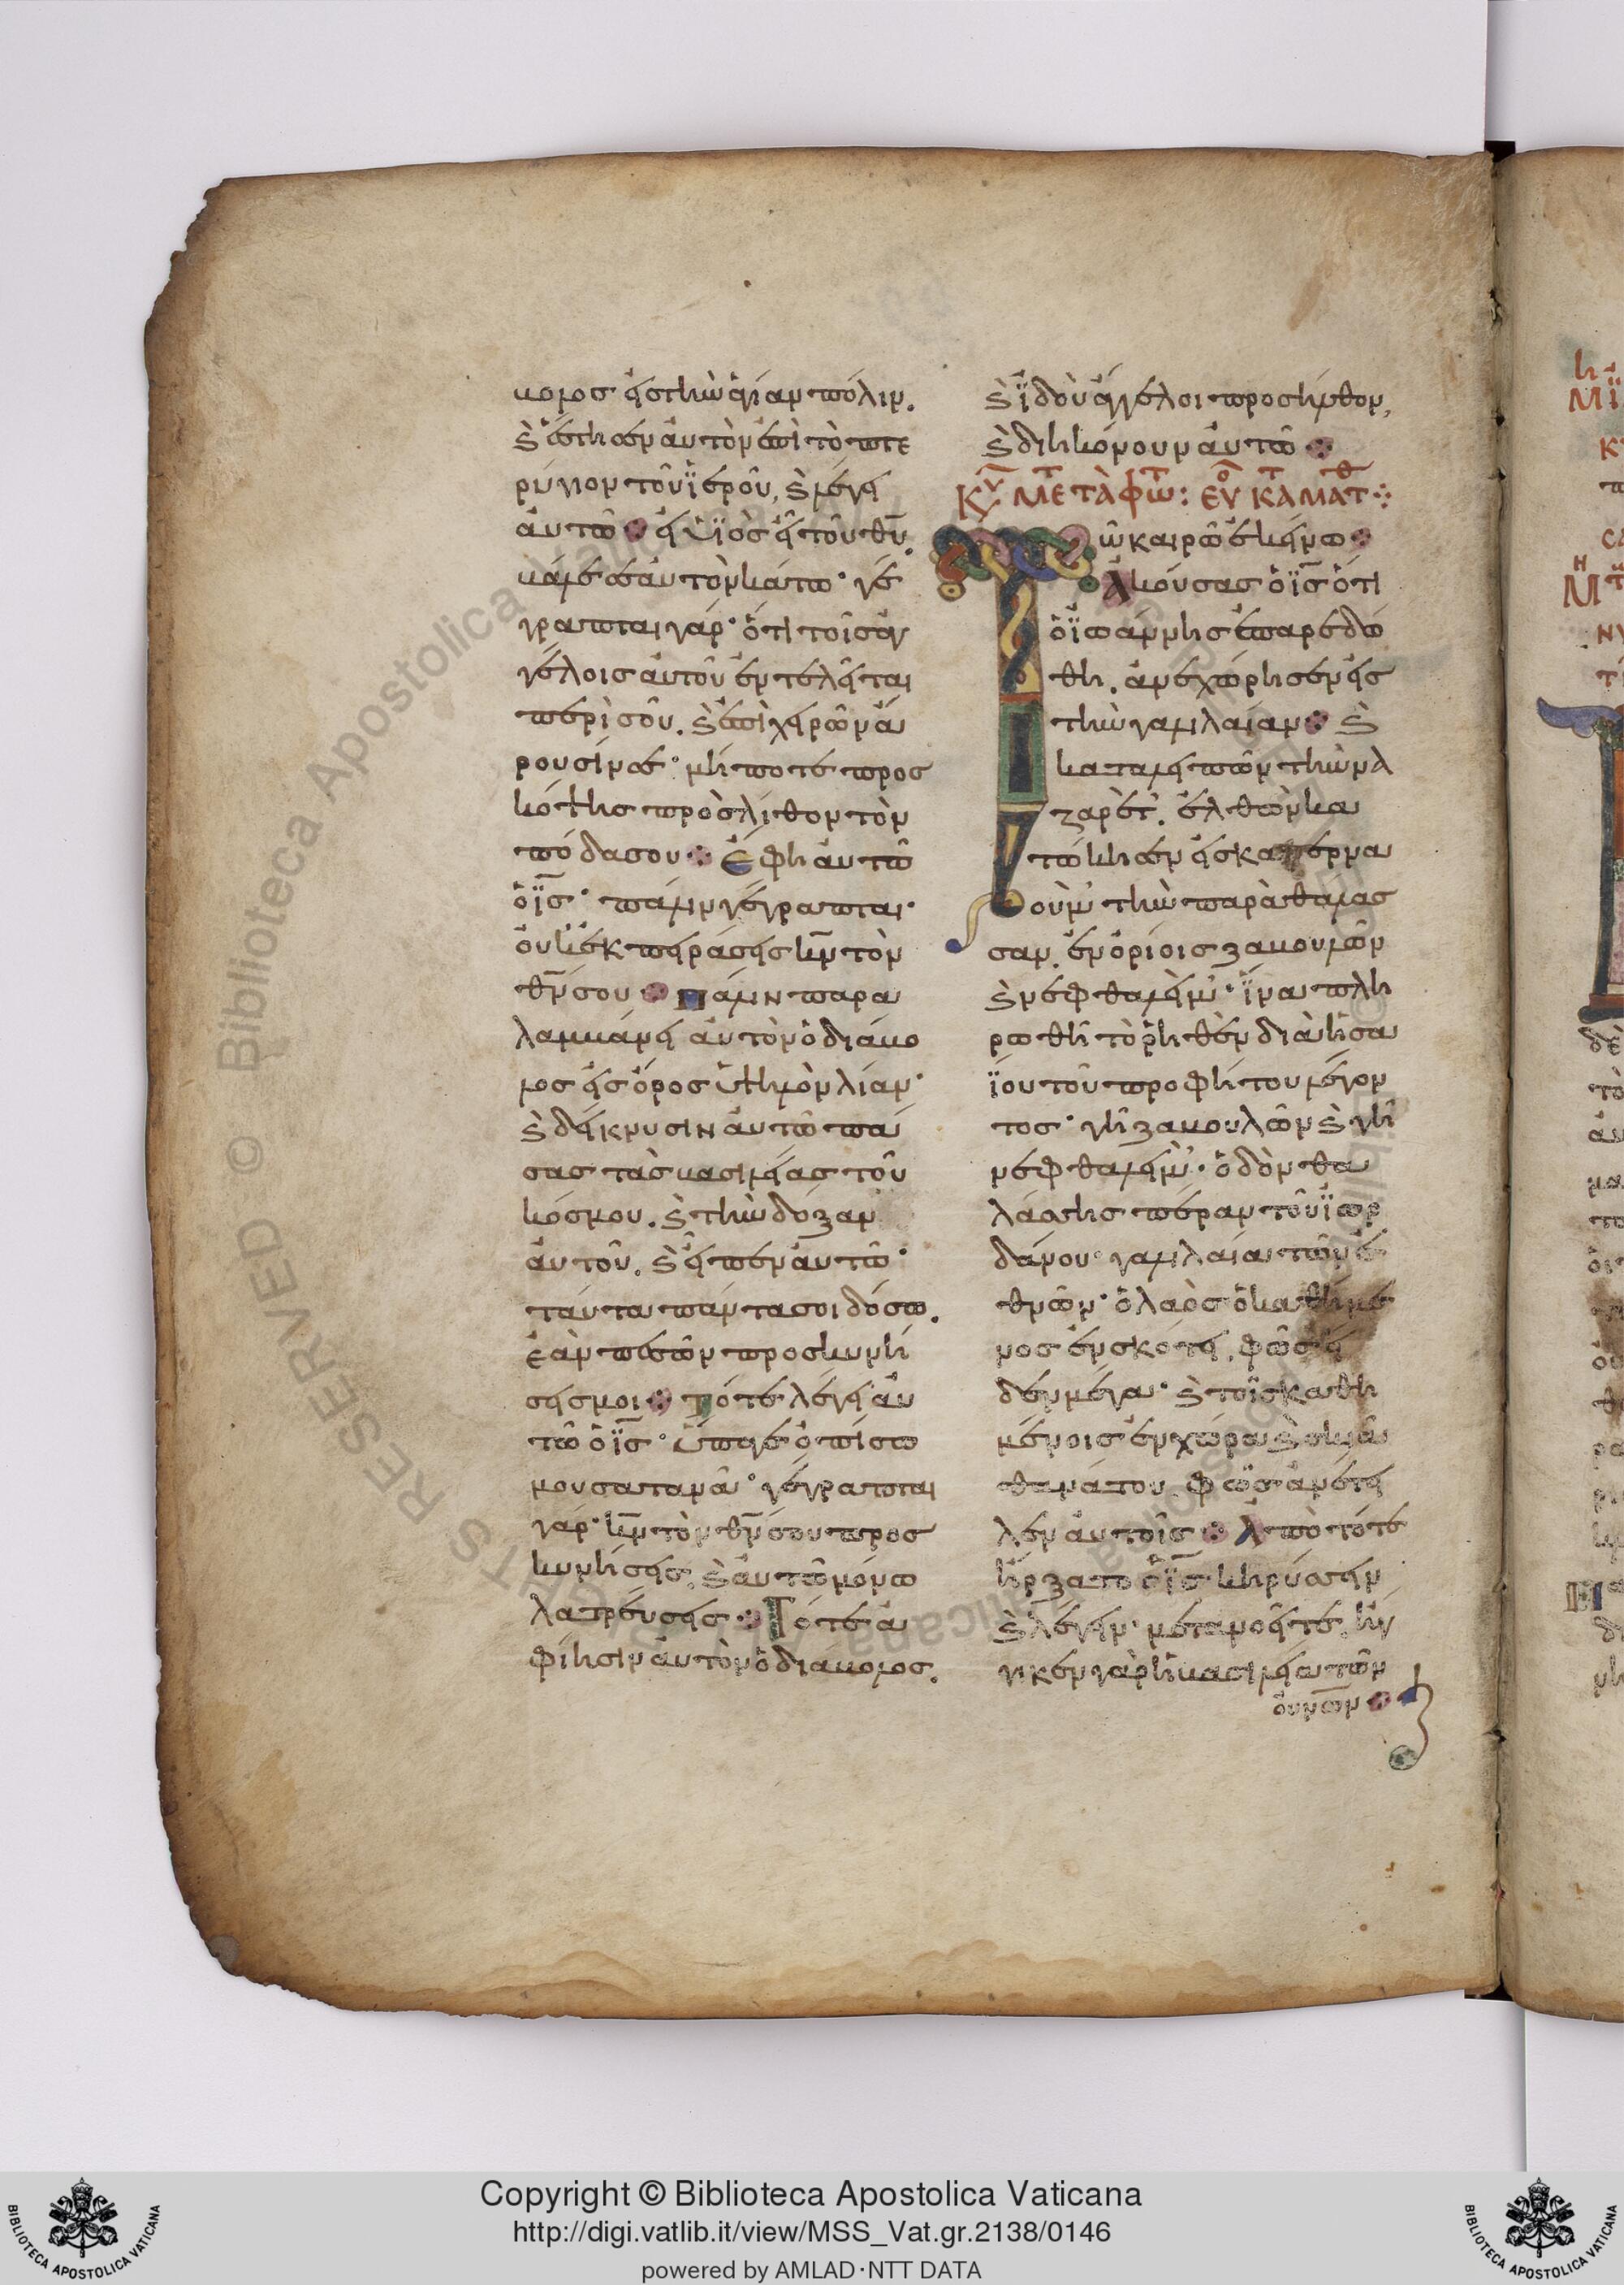 βολος εἰς τὴν ἁγίαν πόλιν.
ϗ ἔστησεν αὐτὸν ἐπὶ τὸ πτε
ρύγιον τοῦ ϊεροῦ, ϗ λέγει
αὐτῶ· εἰ ϋϊὸς εἶ τοῦ θῡ.
βάλε σεαυτὸν κάτω· γέ
γραπται γάρ· ὅτι τοῖς ἀγ
γέλοις αὐτοῦ ἐντελεῖται
περὶ σοῦ. ϗ ἐπὶ χειρῶν ἀ
ροῦσίν σε· μήποτε προς
κόψης πρὸς λίθον τὸν
πόδα σου· Ἔφη αὐτῶ
ὁ ῑς̄· πάλιν γέγραπται·
οὐκ ἐκπειράσεις κ̄ν̄ τὸν
θ̄ν̄ σου· Πάλιν παρα
λαμβάνει αὐτὸν ὁ διάβο
λος εἰς ὄρος ὑψηλὸν λίαν·
ϗ δείκνυσιν αὐτῶ πά
σας τὰς βασιλείας τοῦ
κόσμου. ϗ τὴν δόξαν
αὐτοῦ. ϗ εἶπεν αὐτῶ·
ταῦτα πάντα σοι δόσω.
ἐὰν πεσῶν προσκυνή
σεις μοι· Τότε λέγει αὐ
τῶ ὁ ῑς̄· ὕπαγε ὀπίσω
μου σατανᾶ· γέγραπται
γάρ· κ̄ν̄ τὸν θ̄ν̄ σου προς
κυνήσεις, ϗ αὐτῶ μόνω
λατρεύσεις· Τότε ἀ
φίησιν αὐτὸν ὁ διάβολος.
ϗ ϊδοὺ ἄγγελοι προσῆλθον,
ϗ διηκόνουν αὐτῶ·
ΚΥ ΜΕΤ ΤΑ ΦΩΤ: ΕΥ ΚΑΤΑ ΜΑΤΘ
Τῶ καιρῶ ἐκείνω·
Ἀκούσας ὁ ῑς̄ ὅτι
ὁ ϊωάννης ἐπαρεδώ
θη. ἀνεχώρησεν εἰς
τὴν γαλιλαίαν· ϗ
καταλειπῶν τὴν να
ζαρὲτ. ἐλθὼν κα
τώκησεν εἰς καπερνα
οὺμ τὴν παρὰ θαλασ
σαν. ἐν ὁρίοις ζαβουλῶν
ϗ νεφθαλεὶμ· ἵνα πλη
ρωθῆ τὸ ῥηθὲν διὰ ἠσα
ΐου τοῦ προφήτου λέγον
τος· γῆ ζαβουλῶν ϗ γῆ
νεφθαλεὶμ· ὁδὸν θα
λάσσης πέραν τοῦ ϊορ
δάνου· γαλιλαία τῶν ἐ
θνῶν· ὁ λαὸς ὁ καθήμε
νος ἐν σκότει, φῶς εἶ
δεν μέγα· ϗ τοῖς καθη
μένοις ἐν χώρα ϗ σκιᾶ
θανάτου φῶς ἀνέτει
λεν αὐτοῖς· Ἀπὸ τότε
ἤρξατο ὁ ῑς̄ κηρύσσειν
ϗ λέγειν· μετανοεῖτε. ἤγ
γικεν γὰρ ἡ βασιλεία τῶν
οὐνῶν·
Copyright © Biblioteca Apostolica Vaticana
http://digi.vatlib.it/view/MSS_Vat.gr.2138/0146
powered by AMLAD·NTT DATA